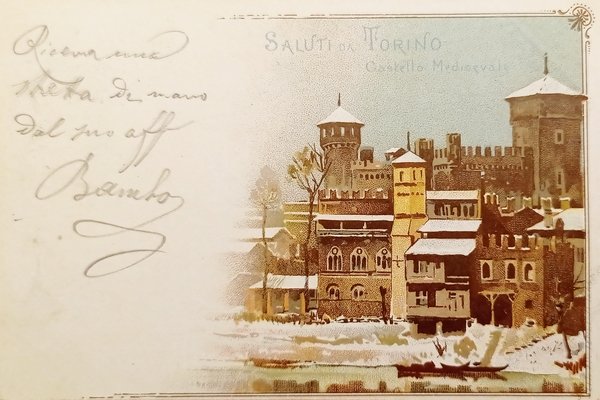 Riceva una
stretta di mano
dal suo aff
Bamba
SALUTI DA TORINO
Castello Medioevale